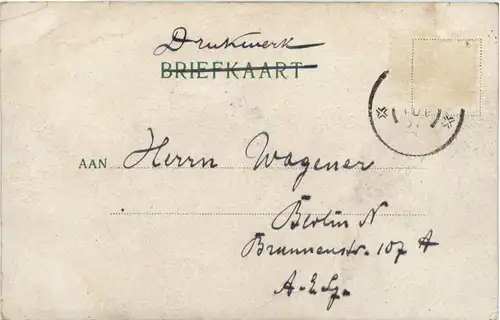 Drukwerk
BRIEFKAART
AAN Herrn Wagener
Berlin N
Brunnenstr. 107 A